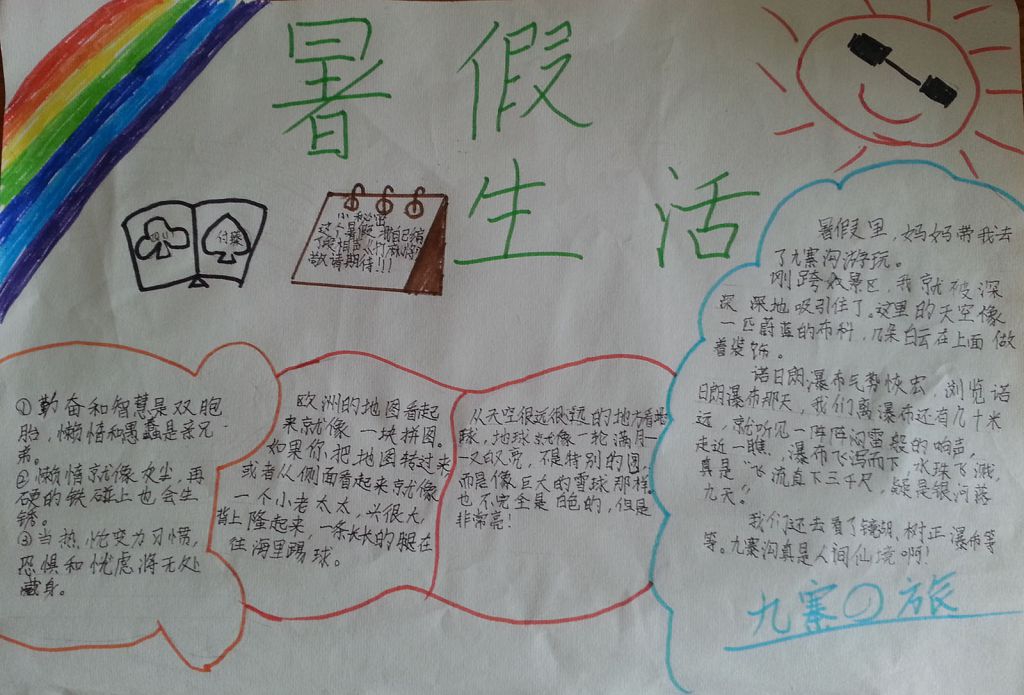 暑假
生活
小秘密
这个暑假,我自己编
敬请期待!!!
付桑
暑假里,妈妈带我去
了九寨沟游玩。
刚跨入景区,我就被深
深深地吸引住了。这里的天空像
一匹蔚蓝的布料,几朵白云在上面做
着装饰。
诺日朗瀑布气势恢宏,浏览诺
日朗瀑布那天,我们离瀑布还有几十米
远,就听见一阵阵闷雷般的响声,
走近一瞧,瀑布飞泻而下,水珠飞溅,
真是“飞流直下三千尺,疑是银河落
九天”。
我们还去看了镜湖、树正瀑布等
等。九寨沟真是人间仙境啊!
九寨の旅
①勤奋和智慧是双胞
胎,懒惰和愚蠢是亲兄
弟。
②懒惰就像灰尘,再
硬的铁碰上也会生
锈。
③当热忱变为习惯,
恐惧和忧虑将无处
藏身。
欧洲的地图看起
来就像一块拼图。
如果你把地图转过来,
或者从侧面看起来就像
一个小老太太,头很大,
背上隆起来,一条长长的腿在
往海里踢球。
从天空很远很远的地方看地
球,地球就像一轮满月——
又白又亮,不是特别的圆,
而是像巨大的雪球那样。
也不完全是白色的,但是
非常亮!